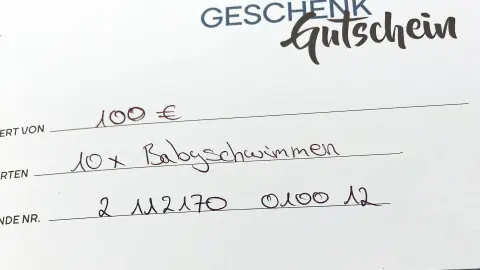 GESCHENK
Gutschein
ERT VON 100 €
RTEN 10x Babyschwimmen
NDE NR. 2 112170 0100 12